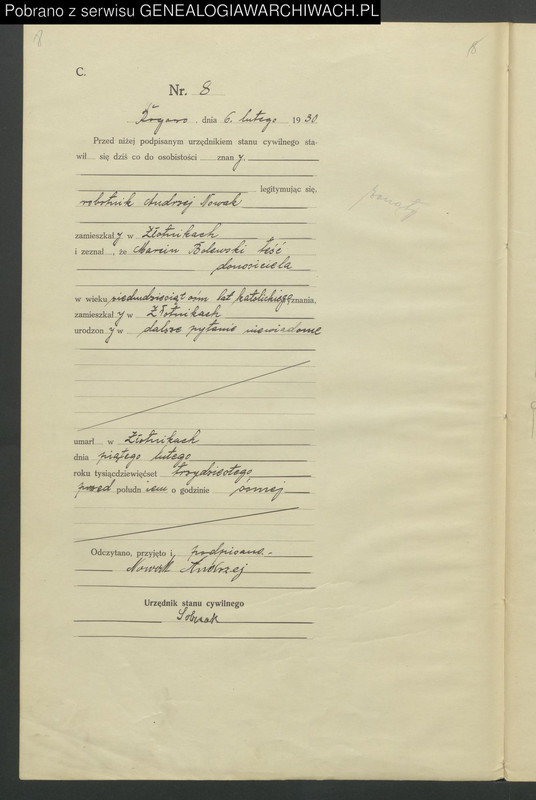 Pobrano z serwisu GENEALOGIAWARCHIWACH.PL
C.
Nr. 8
dnia 6. lutego 1930
Przed niżej podpisanym urzędnikiem stanu cywilnego sta-
wił się dziś co do osobistości znany.
legitymując się,
robotnik Andrzej Nowak
zamieszkały w Złotnikach
i zeznał, że Marcin Bolewski teść
donosiciela
w wieku siedmdziesiąt ośm lat katolickiego wyznania,
zamieszkały w Złotnikach
urodzony w dalsze pytanie niewiadome
umarł w Złotnikach
dnia piątego lutego
roku tysiącdziewięćset trzydziestego
przed południem o godzinie ósmej
Odczytano, przyjęto i podpisane.-
Nowak Andrzej
Urzędnik stanu cywilnego
Sobczak